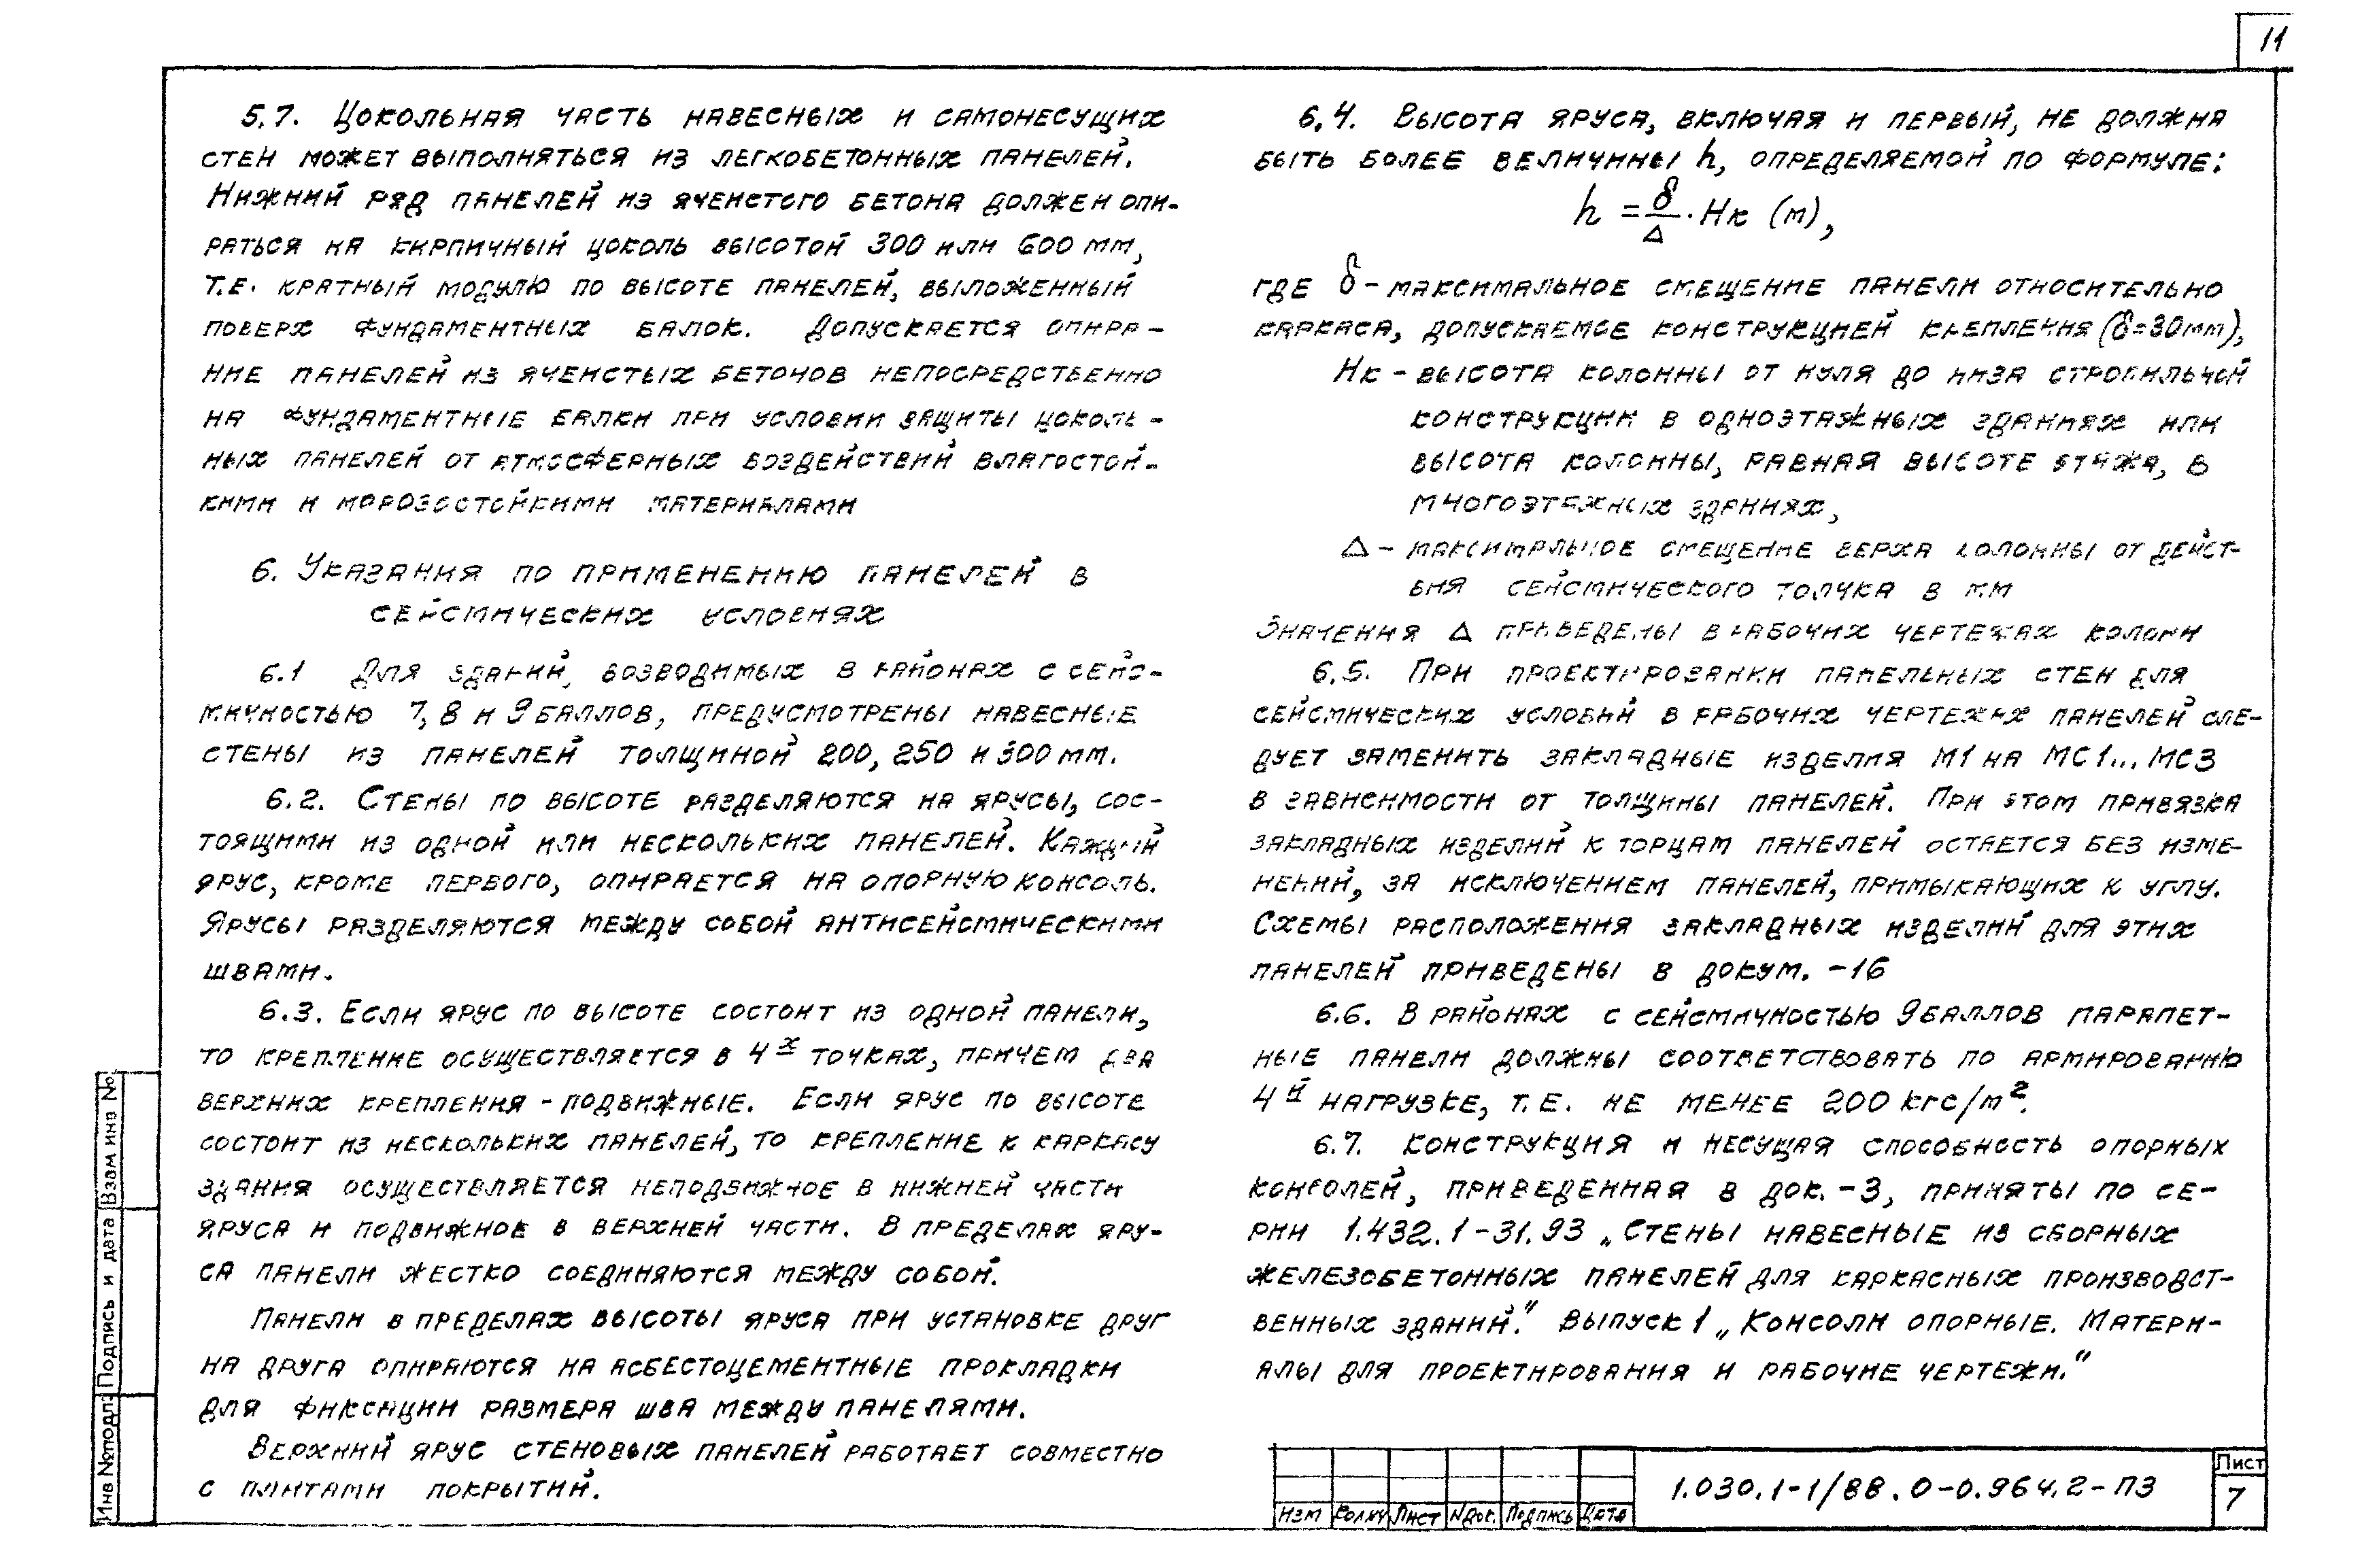 11
5.7. Цокольная часть навесных и самонесущих
стен может выполняться из легкобетонных панелей.
Нижний ряд панелей из ячеистого бетона должен опи-
раться на кирпичный цоколь высотой 300 или 600 мм,
т.е. кратный модулю по высоте панелей, выложенный
поверх фундаментных балок. Допускается опира-
ние панелей из ячеистых бетонов непосредственно
на фундаментные балки при условии защиты цоколь-
ных панелей от атмосферных воздействий влагостой-
кими и морозостойкими материалами
6. Указания по применению панелей в
сейсмических условиях
6.1 Для зданий, возводимых в районах с сейс-
мичностью 7, 8 и 9 баллов, предусмотрены навесные
стены из панелей толщиной 200, 250 и 300 мм.
6.2. Стены по высоте разделяются на ярусы, сос-
тоящими из одной или нескольких панелей. Каждый
ярус, кроме первого, опирается на опорную консоль.
Ярусы разделяются между собой антисейсмическими
швами.
6.3. Если ярус по высоте состоит из одной панели,
то крепление осуществляется в 4х точках, причем два
верхних крепления - подвижные. Если ярус по высоте
состоит из нескольких панелей, то крепление к каркасу
здания осуществляется неподвижное в нижней части
яруса и подвижное в верхней части. В пределах яру-
са панели жестко соединяются между собой.
Панели в пределах высоты яруса при установке друг
на друга опираются на асбестоцементные прокладки
для фиксации размера шва между панелями.
Верхний ярус стеновых панелей работает совместно
с плитами покрытий.
6.4. Высота яруса, включая и первый, не должна
быть более величины h, определяемой по формуле:
h = δ/Δ · Нк (м),
где δ - максимальное смещение панели относительно
каркаса, допускаемое конструкцией крепления (δ=30мм),
Нк - высота колонны от нуля до низа стропильной
конструкции в одноэтажных зданиях или
высота колонны, равная высоте этажа, в
многоэтажных зданиях,
Δ - максимальное смещение верха колонны от дейст-
вия сейсмического толчка в мм
Значения Δ приведены в рабочих чертежах колонн
6.5. При проектировании панельных стен для
сейсмических условий в рабочих чертежах панелей сле-
дует заменить закладные изделия М1 на МС1... МС3
в зависимости от толщины панелей. При этом привязка
закладных изделий к торцам панелей остается без изме-
нений, за исключением панелей, примыкающих к углу.
Схемы расположения закладных изделий для этих
панелей приведены в докум. -16
6.6. В районах с сейсмичностью 9 баллов парапет-
ные панели должны соответствовать по армированию
4й нагрузке, т.е. не менее 200 кгс/м².
6.7. Конструкция и несущая способность опорных
консолей, приведенная в док. -3, приняты по се-
рии 1.432.1-31.93 „Стены навесные из сборных
железобетонных панелей для каркасных производст-
венных зданий." Выпуск 1 „Консоли опорные. Матери-
алы для проектирования и рабочие чертежи."
Взам инв №
Подпись и дата
Инв №подл.
Изм Кол.уч Лист № док. Подпись Дата
1.030.1-1/88.0-0.964.2-ПЗ
Лист
7